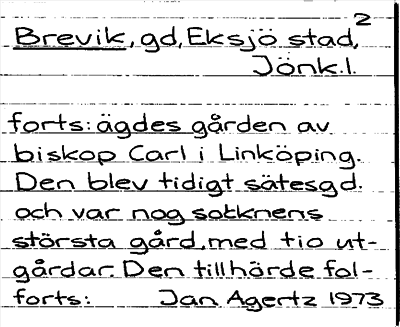 2
Brevik, gd, Eksjö stad,
Jönk.l.
forts: ägdes gården av
biskop Carl i Linköping.
Den blev tidigt sätesgd.
och var nog socknens
största gård, med tio ut-
gårdar. Den tillhörde fol-
forts: Jan Agertz 1973